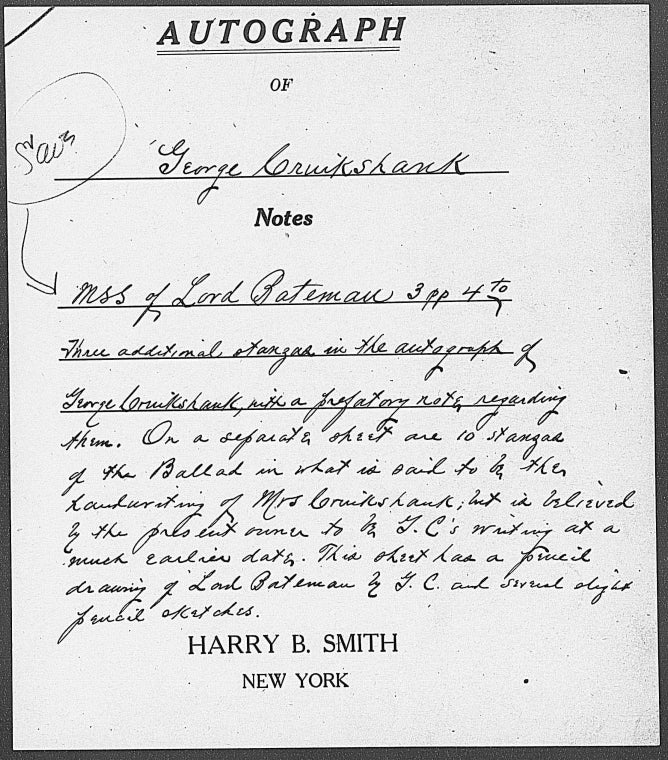 AUTOGRAPH
OF
Save
George Cruikshank
Notes
MSS of Lord Bateman 3 pp 4to
Three additional stanzas in the autograph of
George Cruikshank, with a prefatory note regarding
them. On a separate sheet are 10 stanzas
of the Ballad in what is said to be the
handwriting of Mrs Cruikshank; but is believed
by the present owner to be G.C's writing at a
much earlier date. This sheet has a pencil
drawing of Lord Bateman by G.C. and several slight
pencil sketches.
HARRY B. SMITH
NEW YORK